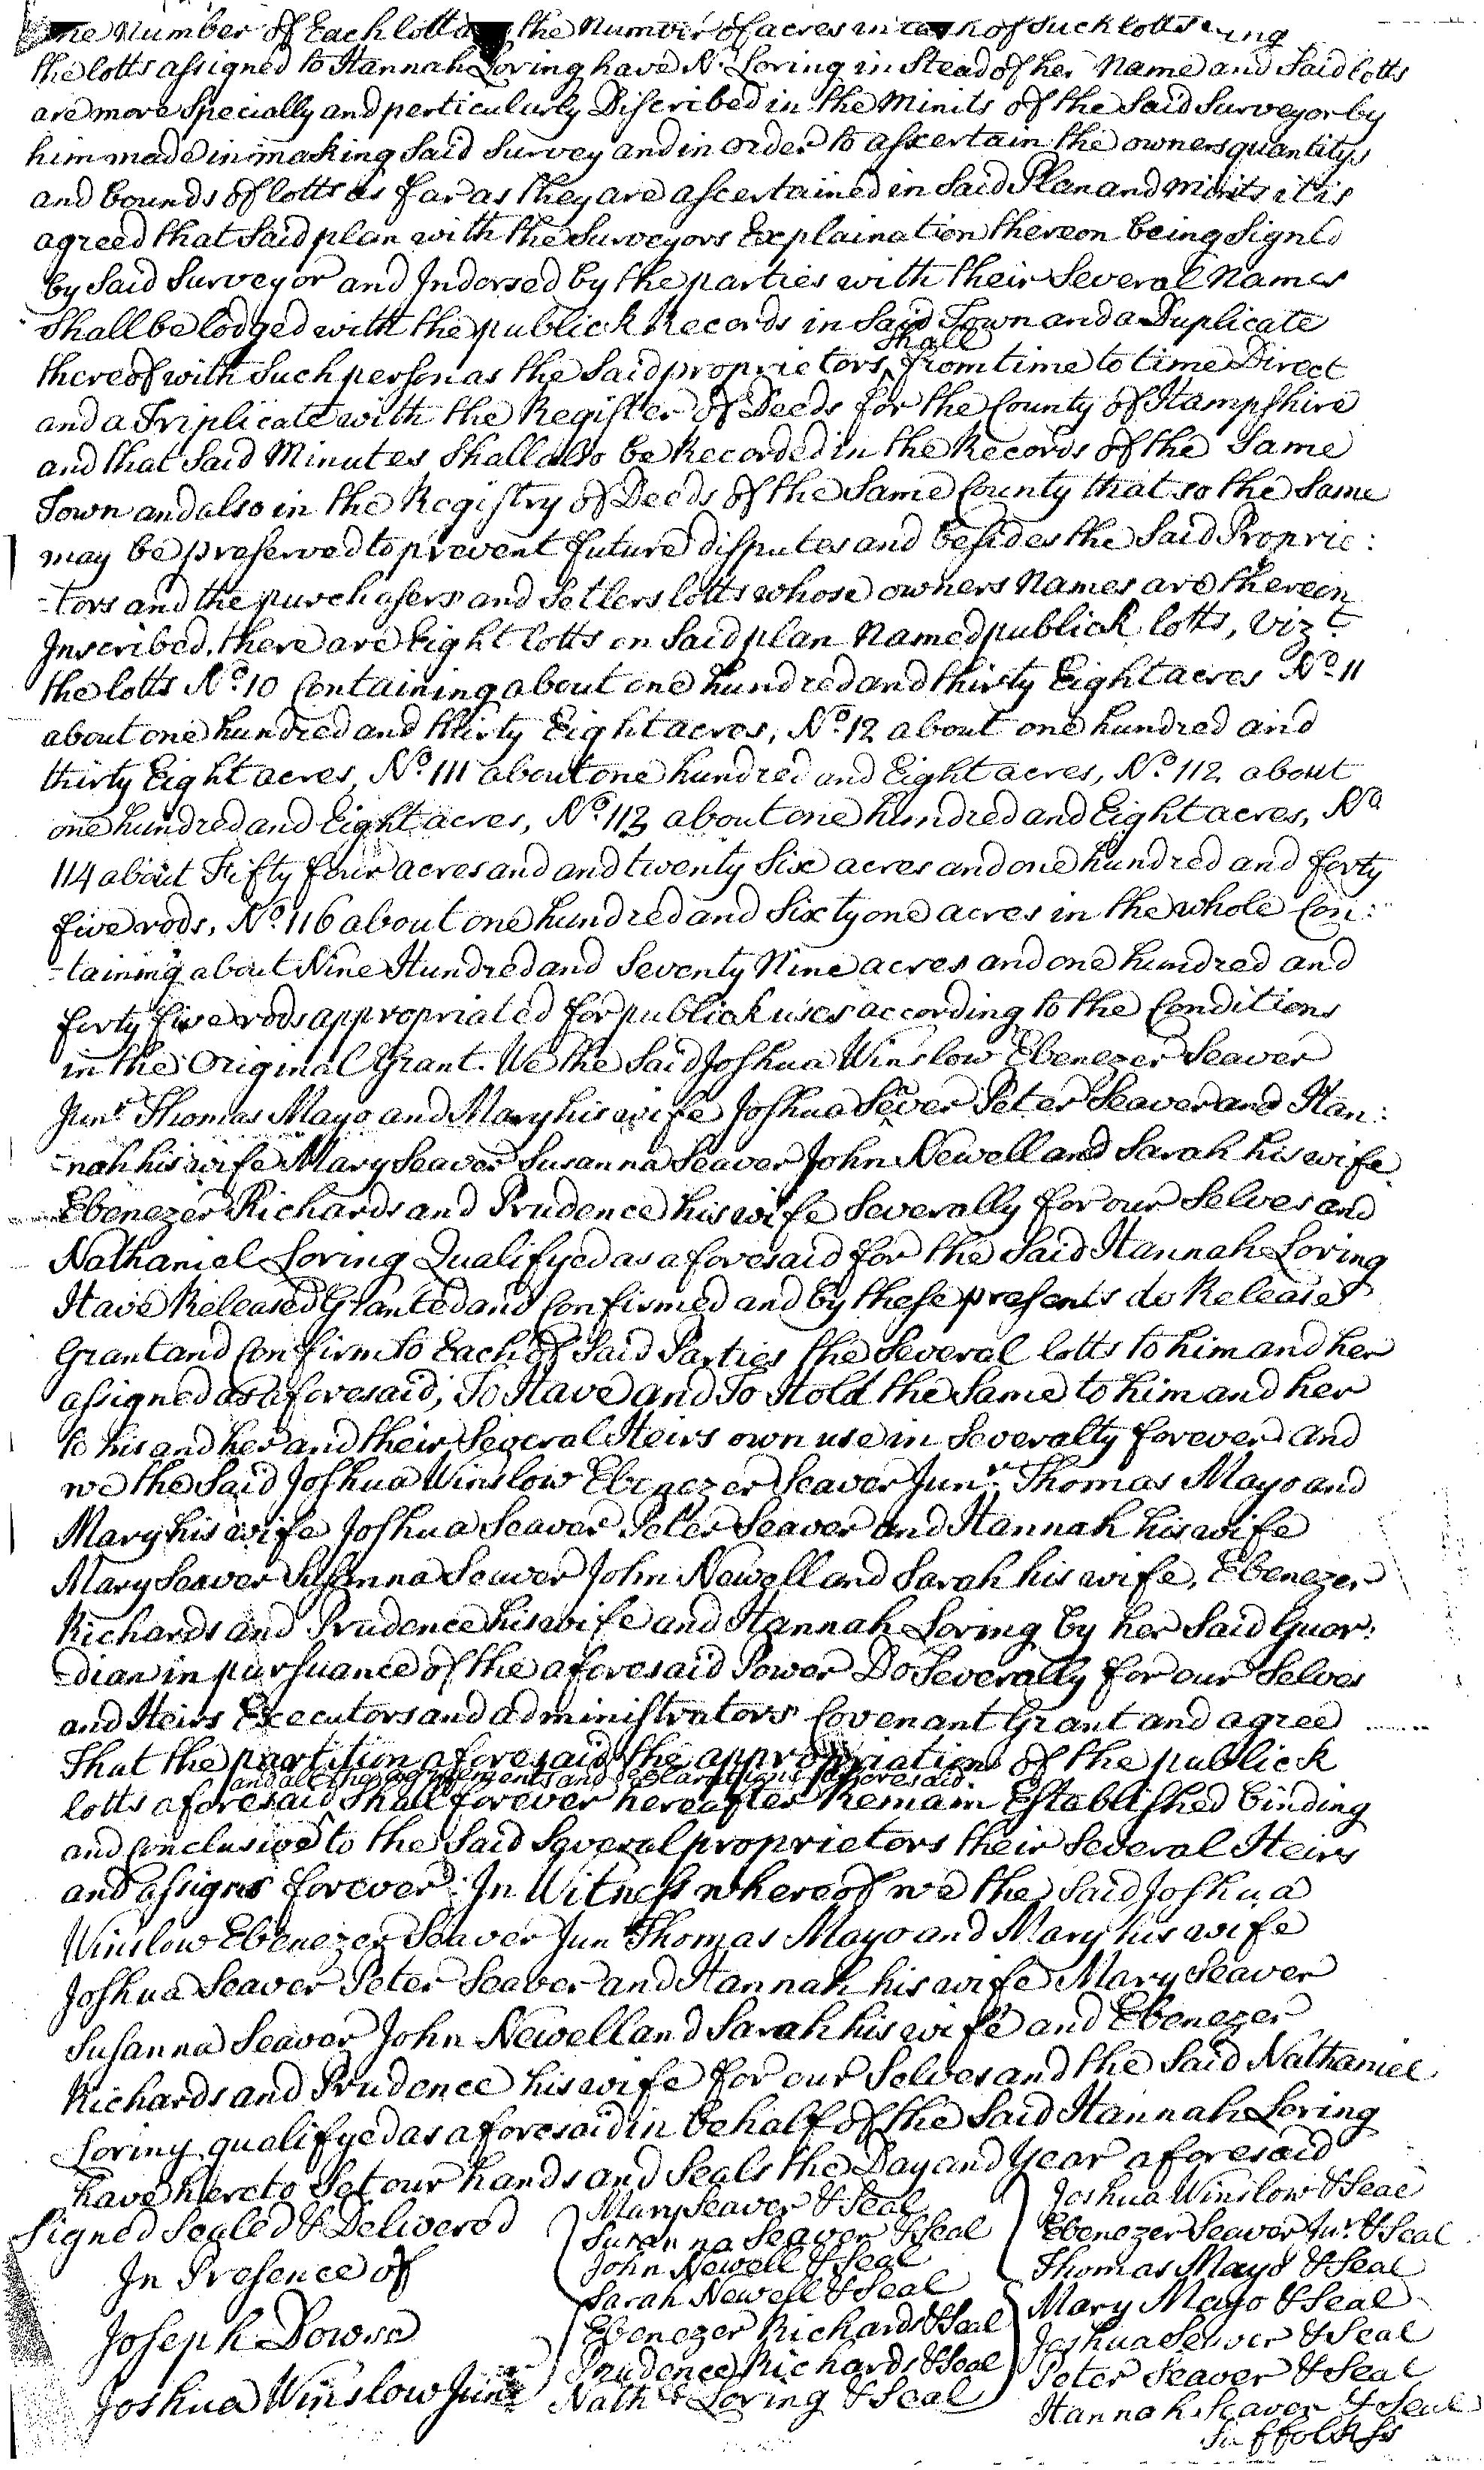 the Number of Each lott and the Number of acres in each of such lotts
the lotts assigned to Hannah Loring have N. Loring in Stead of her Name and Said lotts
are more Specially and perticularly Discribed in the Minits of the Said Surveyor by
him made in making Said Survey and in order to ascertain the owners quantitys
and bounds of lotts as far as they are ascertained in Said Plan and Minits it is
agreed that Said plan with the Surveyors Explaination thereon being Signed
by Said Surveyor and Indorsed by the parties with their Several Names
Shall be lodged with the publick Records in Said Town and a Duplicate
thereof with Such person as the Said proprietors shall from time to time Direct
and a Triplicate with the Register of Deeds for the County of Hampshire
and that Said Minutes Shall also be Recorded in the Records of the Same
Town and also in the Registry of Deeds of the Same County that so the Same
may be preserved to prevent future disputes and besides the Said Proprie:
-tors and the purchasers and Setlers lotts whose owners Names are therein
Inscribed, there are Eight lotts on Said plan Named publick lotts, Vizt.
the lotts No. 10 Containing about one hundred and thirty Eight acres No. 11
about one hundred and thirty Eight acres, No. 12 about one hundred and
thirty Eight acres, No. 111 about one hundred and Eight acres, No. 112 about
one hundred and Eight acres, No. 113 about one hundred and Eight acres, No.
114 about Fifty four acres and and twenty Six acres and one hundred and forty
five rods, No. 116 about one hundred and Sixty one acres in the whole Con:
-taining about Nine Hundred and Seventy Nine acres and one hundred and
forty five rods appropriated for publick uses according to the Conditions
in the Original Grant. We the Said Joshua Winslow Ebenezer Seaver
Junr. Thomas Mayo and Mary his wife Joshua Sever Peter Seaver and Han:
-nah his wife Mary Seaver Susanna Seaver John Newell and Sarah his wife
Ebenezer Richards and Prudence his wife Severally for our Selves and
Nathaniel Loring Qualifyed as aforesaid for the Said Hannah Loring
Have Released Granted and Confirmed and by these presents do Release
Grant and Confirm to Each of Said Parties the Several lotts to him and her
assigned as aforesaid, To Have and To Hold the Same to him and her
to his and her and their Several Heirs own use in Severalty forever and
we the Said Joshua Winslow Ebenezer Seaver Junr. Thomas Mayo and
Mary his wife Joshua Seaver Peter Seaver and Hannah his wife
Mary Seaver Susanna Seaver John Newell and Sarah his wife, Ebenezer
Richards and Prudence his wife and Hannah Loring by her Said Guar:
-dian in pursuance of the aforesaid Power Do Severally for our Selves
and Heirs Executors and administrators Covenant Grant and agree
That the partition aforesaid the appropriation of the publick
lotts aforesaid and all the agreements and declarations aforesaid Shall forever hereafter Remain Established binding
and Conclusive to the Said Several proprietors their Several Heirs
and assigns forever. In Witness whereof we the Said Joshua
Winslow Ebenezer Seaver Jun Thomas Mayo and Mary his wife
Joshua Seaver Peter Seaver and Hannah his wife Mary Seaver
Susanna Seaver John Newell and Sarah his wife and Ebenezer
Richards and Prudence his wife for our Selves and the Said Nathaniel
Loring qualifyed as aforesaid in behalf of the Said Hannah Loring
have hereto Set our hands and Seals the Day and Year aforesaid
Signed Sealed & Delivered
In Presence of
Joseph Dowse
Joshua Winslow Junr
Mary Seaver & Seal
Susanna Seaver & Seal
John Newell & Seal
Sarah Newell & Seal
Ebenezer Richards & Seal
Prudence Richards & Seal
Nathl. Loring & Seal
Joshua Winslow & Seal
Ebenezer Seaver Junr. & Seal
Thomas Mayo & Seal
Mary Mayo & Seal
Joshua Seaver & Seal
Peter Seaver & Seal
Hannah Seaver & Seal
Suffolk Ss